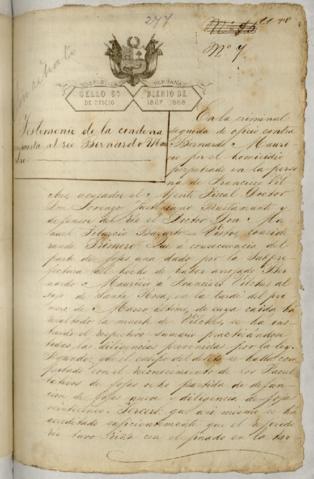 277
Nº 7
REPUBLICA PERUANA
SELLO 6º BIENIO DE
DE OFICIO 1867 1868
Testimonio de la condena
puesta al reo Bernardo Mau
En la criminal
seguida de oficio contra
Bernardo Mauri
cio por el homicidio
perpetrado en la perso
na de Francisco Vil
ches acusador el Ajente Fiscal Doctor
Don Lorenzo Bustamante y
defensor del reo el Doctor Don Ma
nuel Vistos conside
rando Primero Que á consecuencia del
parte de fojas una dado por la Subpre
fectura del hecho de haber arrojado Ber
nardo Mauricio á Francisco Vilches al
de Santa Rosa, en la tarde del pri
mero de Marzo último, de cuya caida ha
resultado la muerte de Vilches, se ha ins
taurado el respectivo sumario practicandose
todas las diligencias prevenidas por la ley
Segundo, que el cuerpo del delito se halla com
probado con el reconocimiento de los facul
tativos de fojas ocho partida de defun
cion de fojas nueve y diligencia de fojas
Tercero que asi mismo se ha
acreditado suficientemente que el referido
reo tuvo riña con el finado en la tar